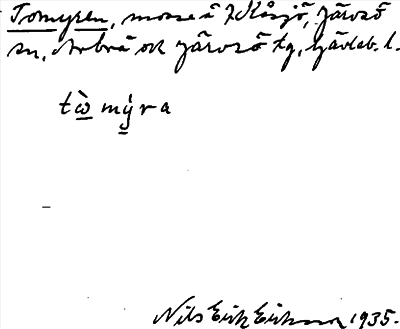 Tomyren, mosse å Kåsjö, Järvsö
sn, Arbrå och Järvsö tg, Gävleb. l.
tò̲ mý̲ra
Nils Erik Eriksson 1935.